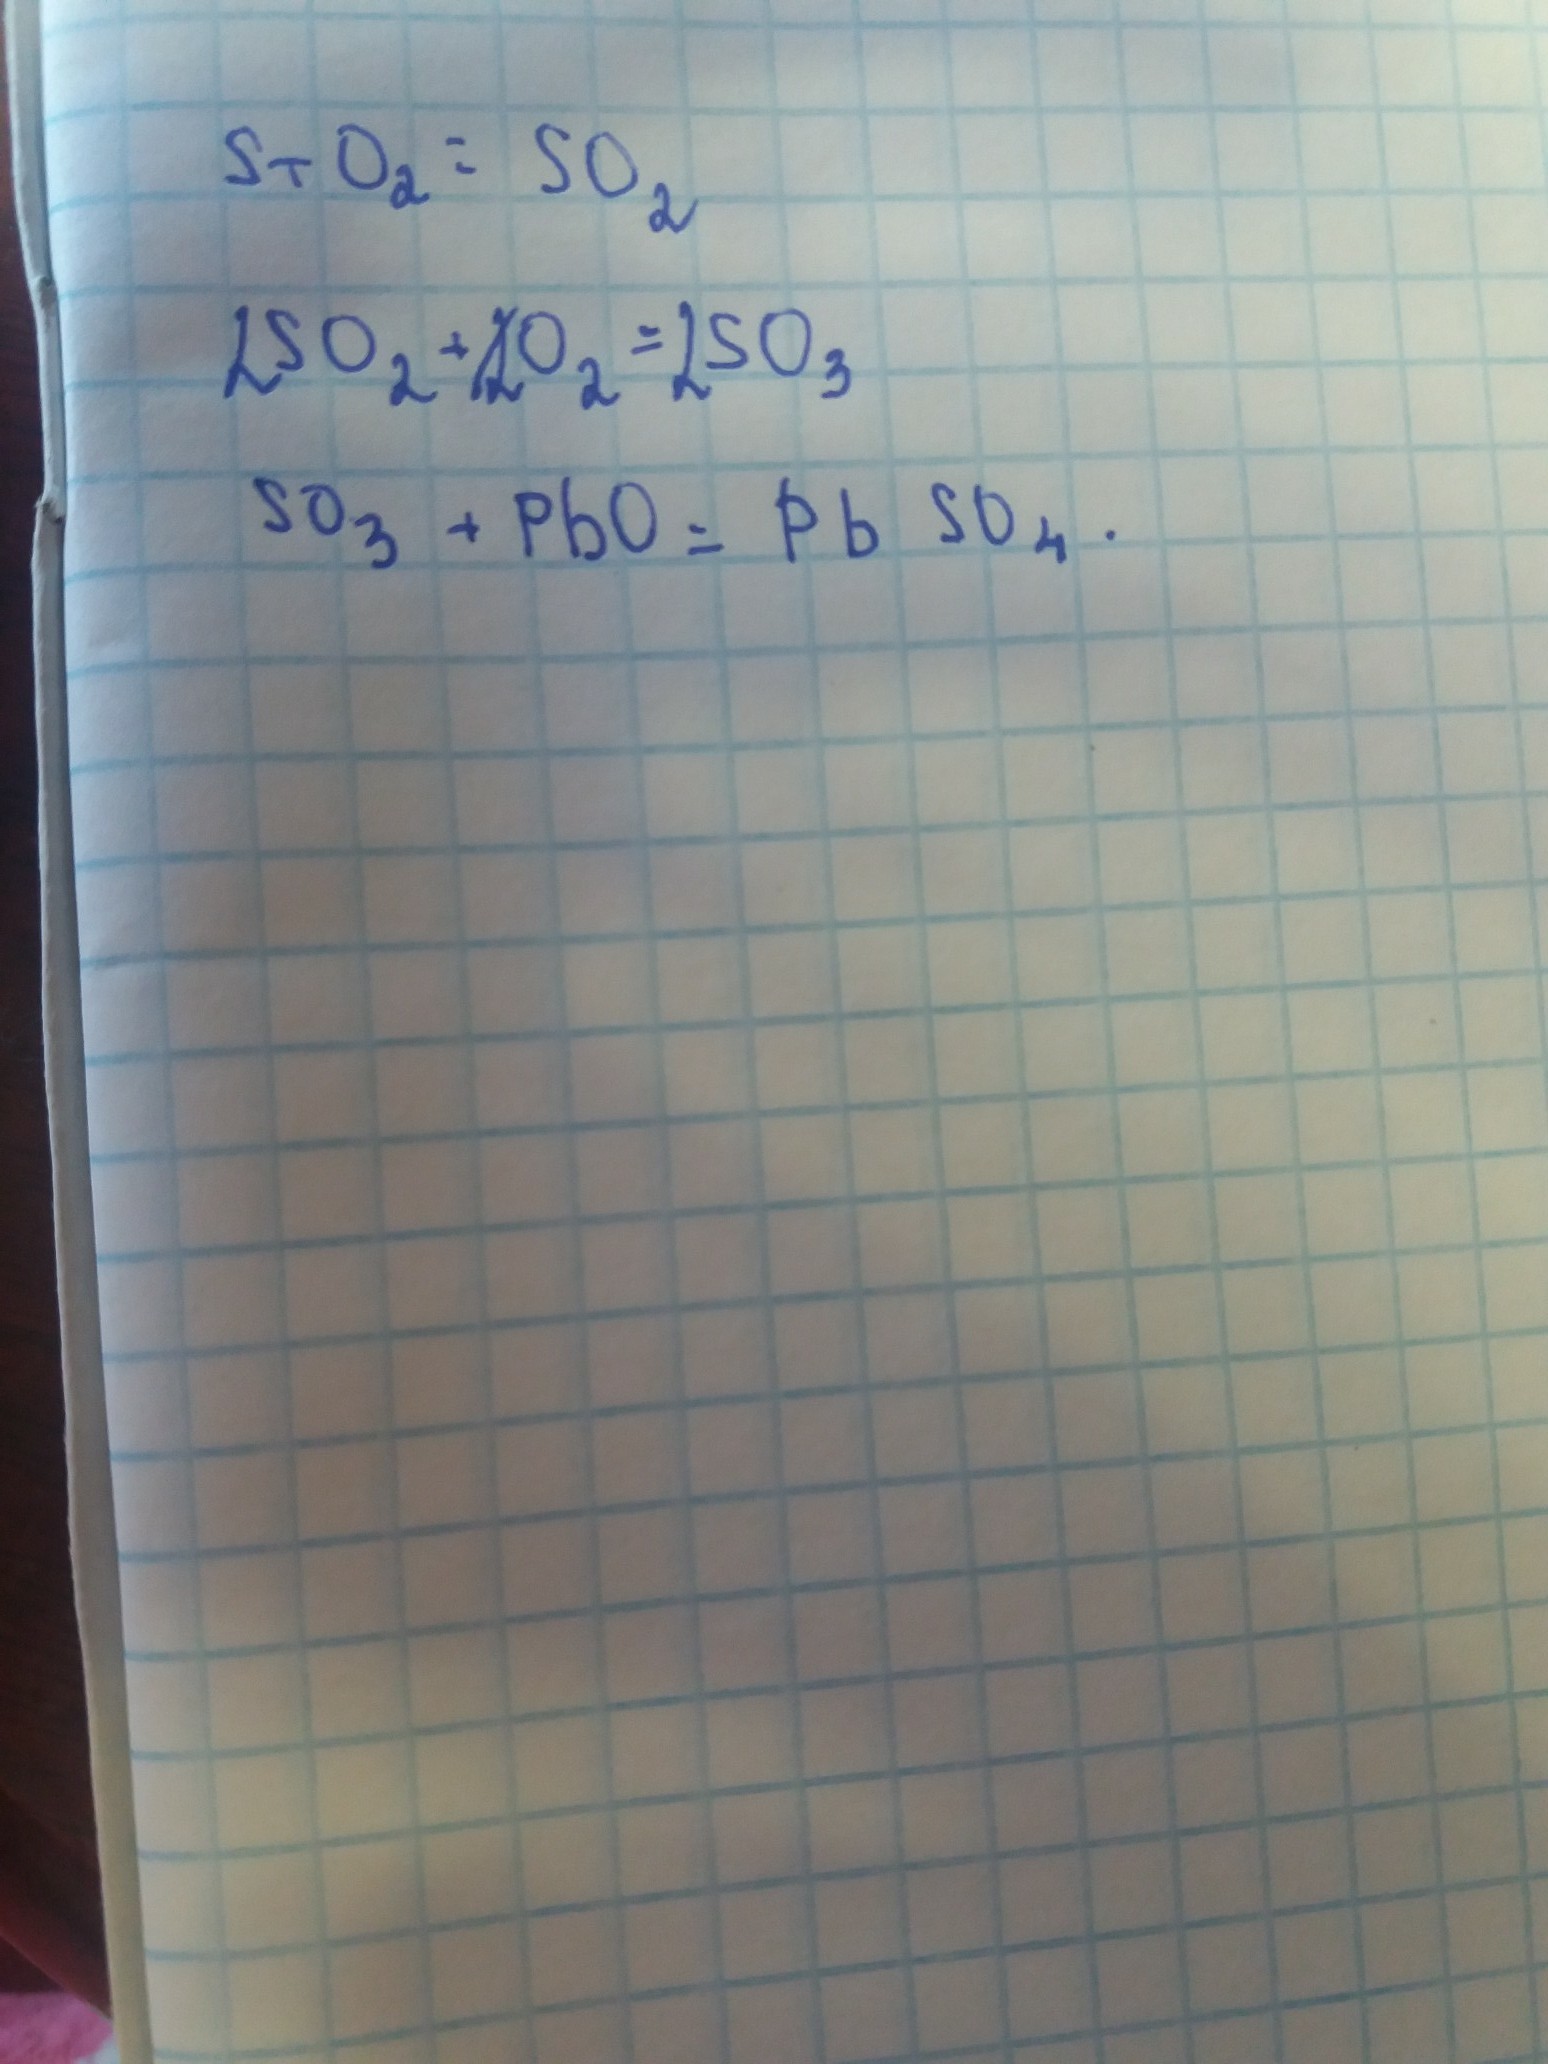 S+O₂ = SO₂
2SO₂+O₂=2SO₃
SO₃ + PbO = Pb SO₄.